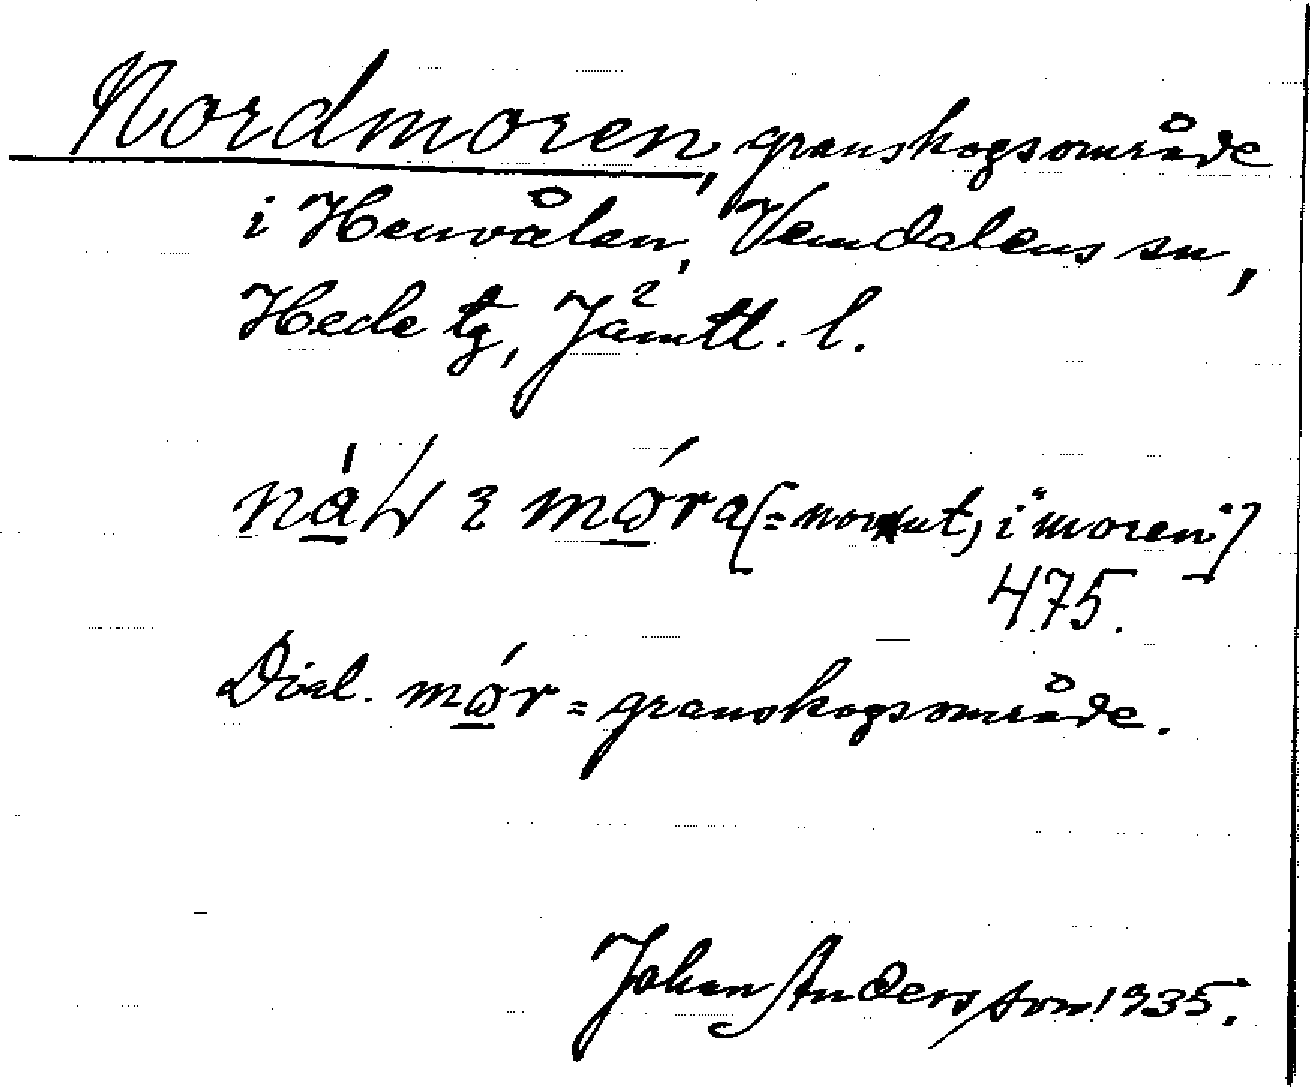 Nordmoren, granskogsområde
i Henvålen, Vemdalens sn,
Hede tg, Jämtl. l.
móra [= norrut, i "moren"]
475.
Dial. mór = granskogsområde.
Johan Andersson 1935.